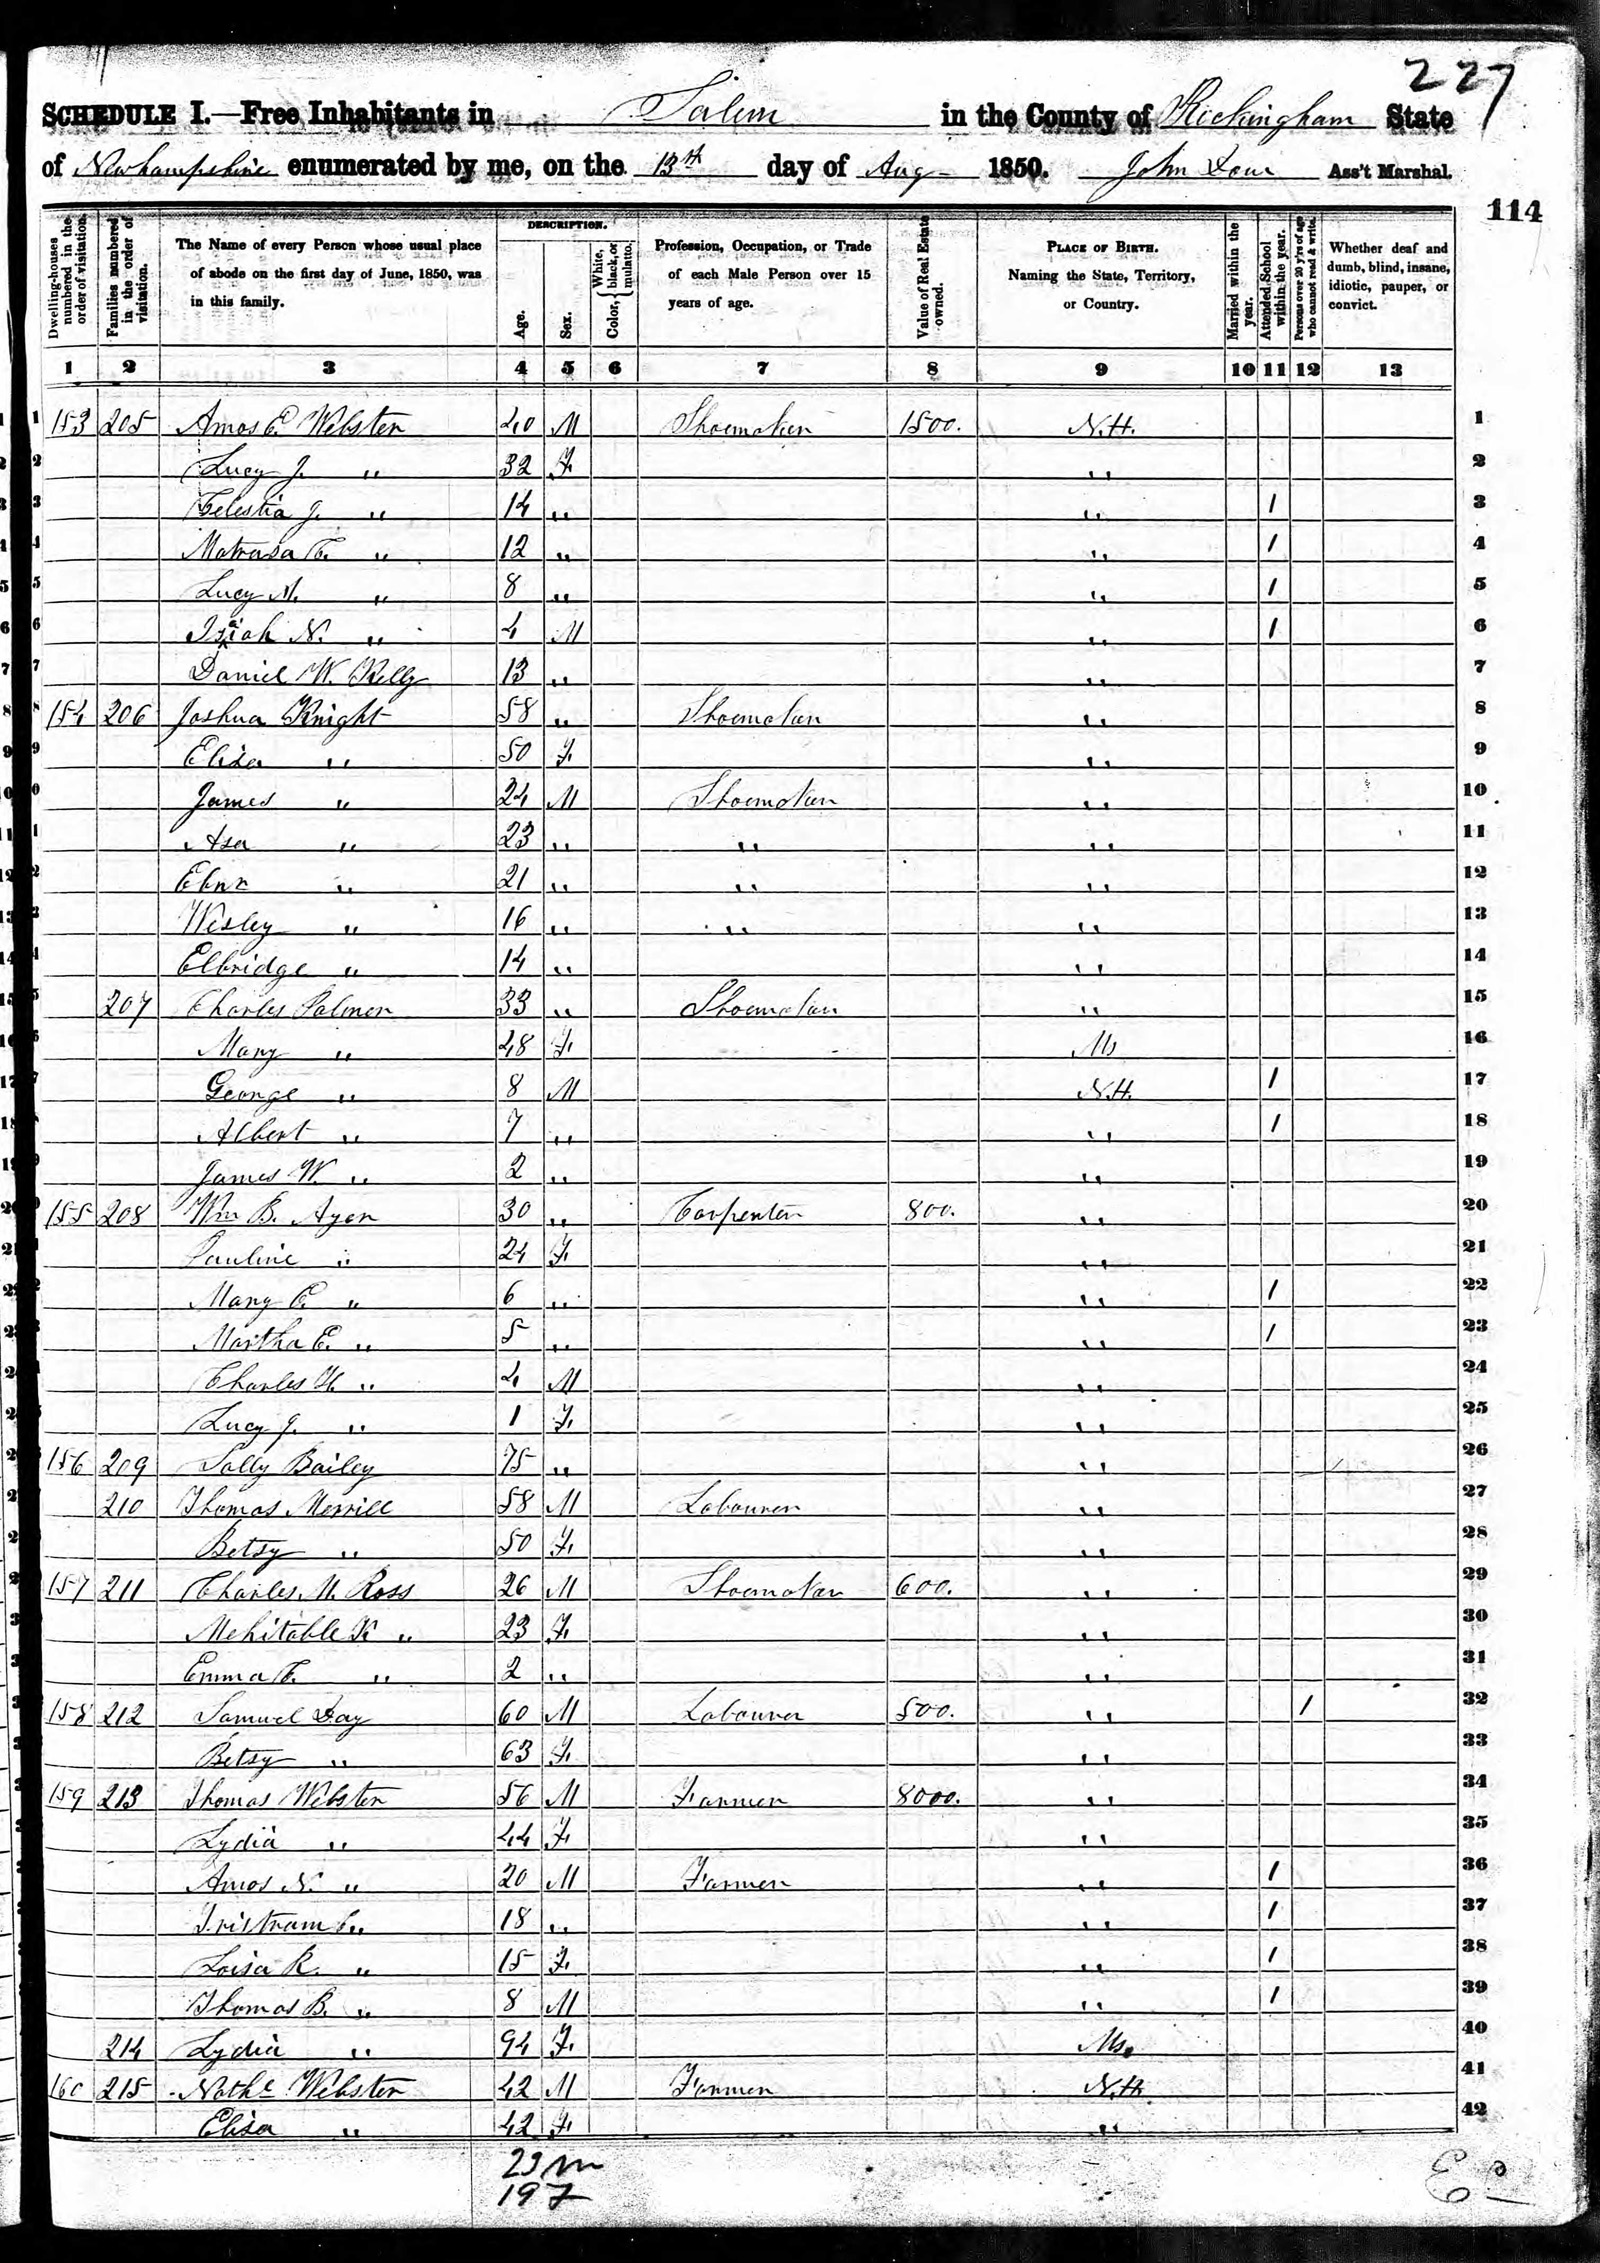 227
SCHEDULE I.—Free Inhabitants in Salem in the County of Rockingham State
of Newhampshire enumerated by me, on the 13th day of Aug 1850. John Ass't Marshal.
114
Dwelling-houses numbered in the order of visitation.
Families numbered in the order of visitation.
The Name of every Person whose usual place of abode on the first day of June, 1850, was in this family.
DESCRIPTION.
Age.
Sex.
Color, { White, black, or mulatto.
Profession, Occupation, or Trade of each Male Person over 15 years of age.
Value of Real Estate owned.
PLACE OF BIRTH. Naming the State, Territory, or Country.
Married within the year.
Attended School within the year.
Persons over 20 y'rs of age who cannot read & write.
Whether deaf and dumb, blind, insane, idiotic, pauper, or convict.
1 2 3 4 5 6 7 8 9 10 11 12 13
1 153 205 Amos E. Webster 40 M Shoemaker 1500. N.H. 1
2 Lucy J. " 32 F. " 2
3 Celestia J. " 14 " " 1 3
4 C. " 12 " " 1 4
5 Lucy " 8 " " 1 5
6 Isaiah N. " 4 M " 1 6
7 Daniel W. Kelly 13 " " 7
8 154 206 Joshua Knight 58 " Shoemaker " 8
9 Eliza " 50 F. " 9
10 James " 24 M Shoemaker " 10
11 Asa " 23 " " " 11
12 " 21 " " " 12
13 Wesley " 16 " " " 13
14 Elbridge " 14 " " 14
15 207 Charles Palmer 33 " Shoemaker " 15
16 Mary " 28 F. Ms 16
17 George " 8 M N.H. 1 17
18 Albert " 7 " " 1 18
19 James W. " 2 " " 19
20 155 208 Wm B. Ayer 30 " Carpenter 800. " 20
21 Pauline " 24 F. " 21
22 Mary E. " 6 " " 1 22
23 Martha E. " 5 " " 1 23
24 Charles H. " 4 M " 24
25 Lucy J. " 1 F. " 25
26 156 209 Sally Bailey 75 " " 26
27 210 Thomas Merrill 58 M Labourer " 27
28 Betsy " 50 F. " 28
29 157 211 Charles M. Ross 26 M Shoemaker 600. " 29
30 Mehitable K " 23 F. " 30
31 Emma C. " 2 " " 31
32 158 212 Samuel Day 60 M Labourer 500. " 1 32
33 Betsy " 63 F. " 33
34 159 213 Thomas Webster 56 M Farmer 8000. " 34
35 Lydia " 44 F. " 35
36 Amos N. " 20 M Farmer " 1 36
37 Tristram C. " 18 " " 1 37
38 Loisa R. " 15 F. " 1 38
39 Thomas B. " 8 M " 1 39
40 214 Lydia " 94 F. Ms. 40
41 160 215 Nathl Webster 42 M Farmer N.H. 41
42 Eliza " 42 F. " 42
23 m
19 F